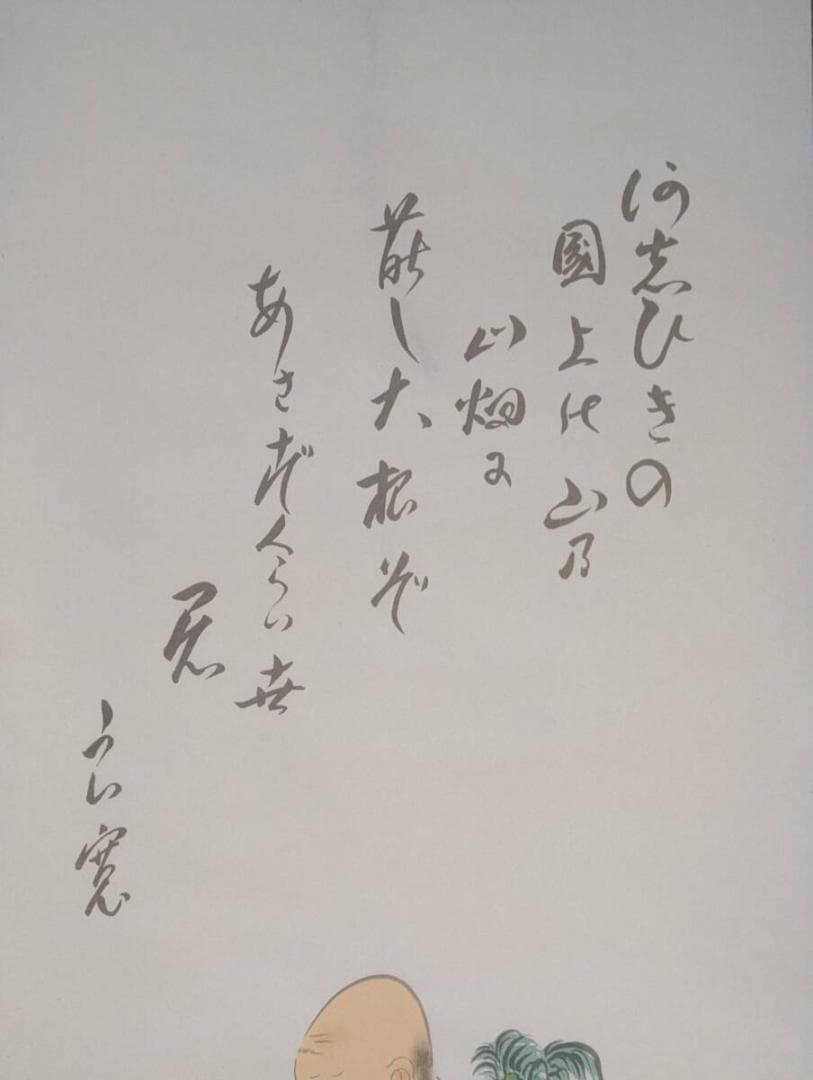 阿志ひきの
國上能山乃
山畑に
蒔し大根ぞ
あさずくらい世
君
良寛